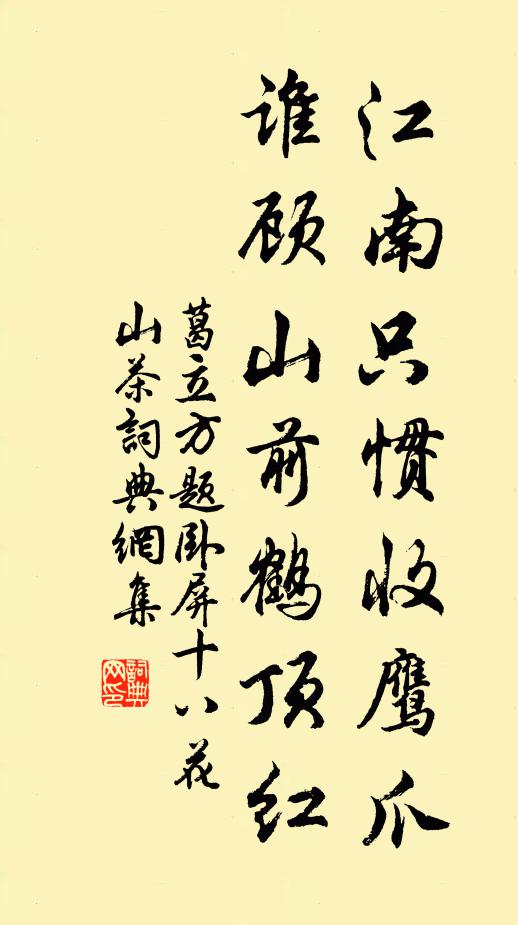 江南只惯收鹰爪
谁顾山前鹤顶红
葛立方题卧屏十八花
山茶詞典網集
詞典网印